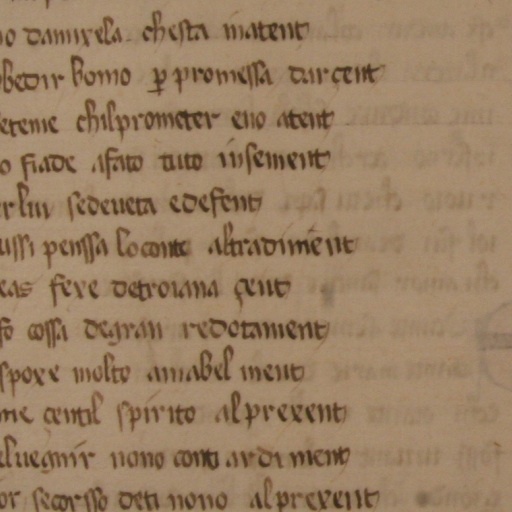 no damixela chesta matent
obedir bomo ꝑ promessa darçent
eteme chilprometer eno atent
o fiade afato tuto insement
erlui sedeveta edefent
ussi penssa loconte altradiment
eas fexe detroiana çent
fo cossa degran redotament
spoxe molto amabel ment
me çentil spirito alprexent
elvegnir nono conti ardiment
or secorsso deti nono alprexent